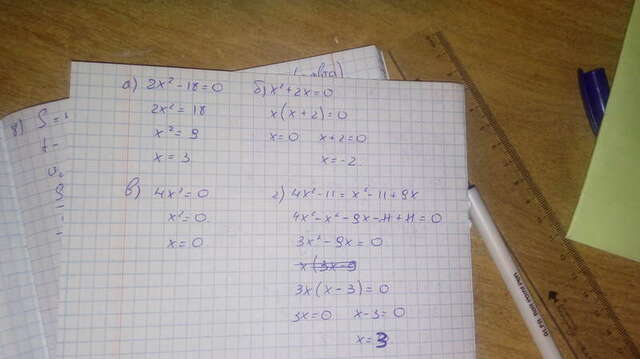 а) 2x² - 18 = 0
2x² = 18
x² = 9
x = 3
б) x² + 2x = 0
x(x + 2) = 0
x = 0 x + 2 = 0
x = -2
в) 4x² = 0
x² = 0
x = 0
г) 4x² - 11 = x² - 11 + 9x
4x² - x² - 9x - 11 + 11 = 0
3x² - 9x = 0
3x(x - 3) = 0
3x = 0 x - 3 = 0
x = 3